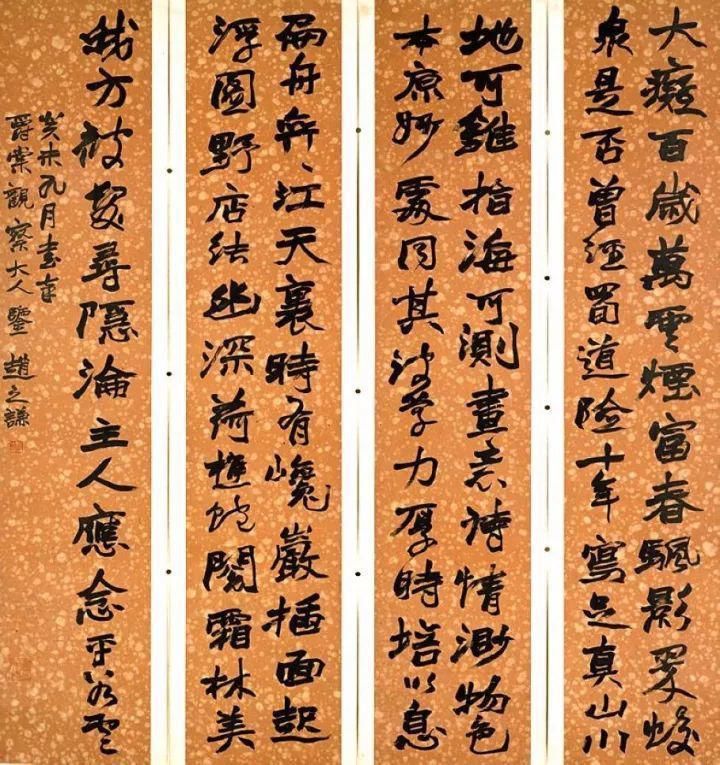 大癡百歲萬雲煙富春影
泉是否曾經蜀道險十年寫足真山川
地可指海可測畫意詩情渺物色
本原妙處同其學力厚時培以息
舟江天裏時有巉巖插面起
浮圖野店結幽深荷樵閣霜林美
我方被髮尋隱淪主人應念
癸未九月
爵棠觀察大人鑒 趙之謙